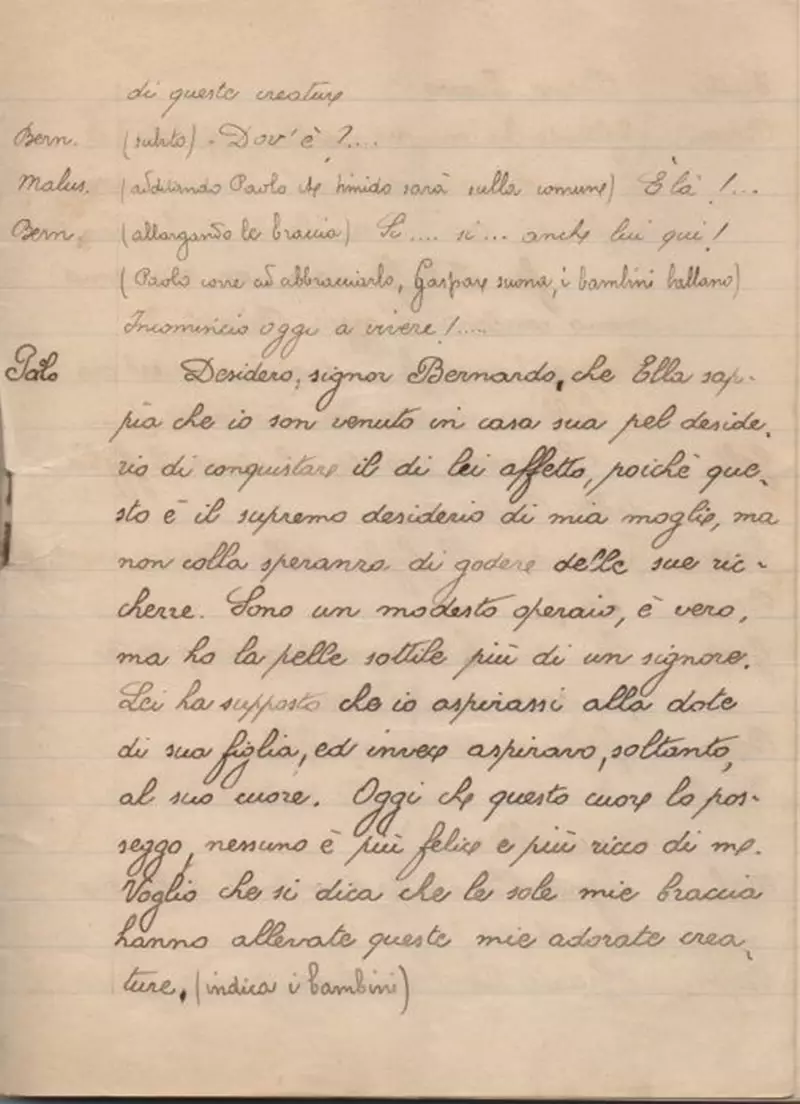 di queste creature
Bern. (subito) - Dov'è ?....
Malus. (additando Paolo che timido sarà sulla comune) È là !...
Bern. (allargando le braccia) Si .... si ... anche lui qui !
(Paolo corre ad abbracciarlo, Gaspare suona, i bambini ballano)
Incomincio oggi a vivere !.....
Palo Desidero, signor Bernardo, che Ella sap-
pia che io son venuto in casa sua pel deside-
rio di conquistare il di lei affetto, poichè que-
sto è il supremo desiderio di mia moglie, ma
non colla speranza di godere delle sue ric-
chezze. Sono un modesto operaio, è vero,
ma ho la pelle sottile più di un signore.
Lei ha supposto che io aspirassi alla dote
di sua figlia, ed invece aspiravo, soltanto,
al suo cuore. Oggi che questo cuore lo pos-
seggo, nessuno è più felice e più ricco di me.
Voglio che si dica che le sole mie braccia
hanno allevate queste mie adorate crea-
ture, (indica i bambini)